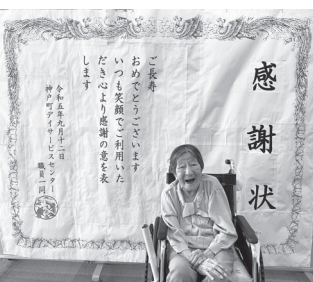 感謝状
ご長寿
おめでとうございます
いつも笑顔でご利用いた
だき心より感謝の意を表
します
令和五年九月十二日
神戸町デイサービスセンター
職員一同